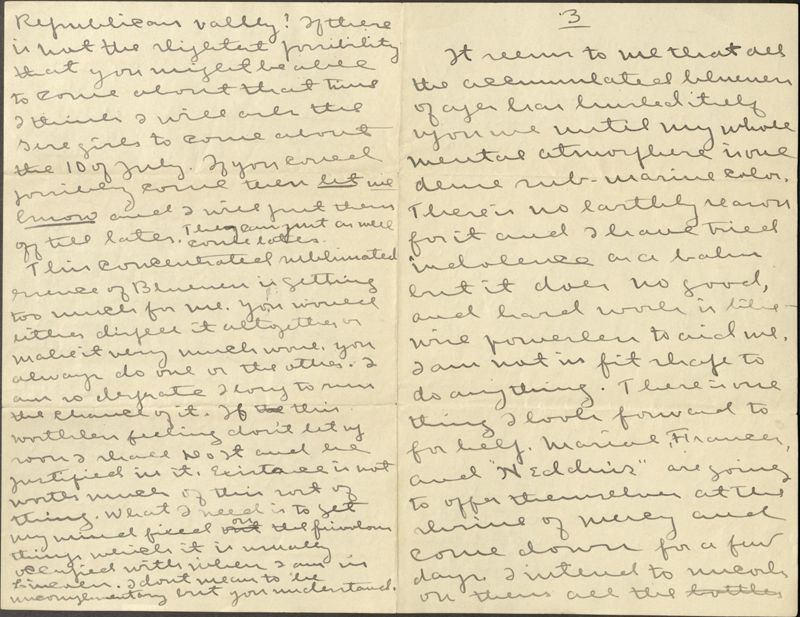 Republican valley? If there
is not the slightest possibility
that you might be able
to come about that time
I think I will ask the
girls to come about
the 10 of July. If you could
possibly come then let me
know and I will put them
off till later. They can just as well
come later.
This concentrated sublimated
essence of Blueness is getting
too much for me. You would
either dispell it altogether or
make it very much worse, you
always do one or the other. I
am so desperate I long to run
the chance of it. If the this
worthless feeling don't let up
soon I shall No It and be
justified in it. Existance is not
worth much of this sort of
thing. What I need is to get
my mind fixed on the frivolous
things which it is usually
occupied with when I am in
Lincoln. I dont mean to be
uncomplimentary but you understand.
3
It seems to me that all
the accumulated blueness
of ages has hurled itself
upon me until my whole
mental atmosphere is one
dense sub-marine color.
There is no earthly reason
for it and I have tried
indolence as a balm
but it does no good,
and hard work is like-
wise powerless to aid me.
I am not in fit shape to
do anything. There is one
thing I look forward to
for help. Mariel, Frances,
and "Neddins" are going
to offer themselves at the
shrine of mercy and
come down for a few
days. I intend to uncork
on them all the bottles